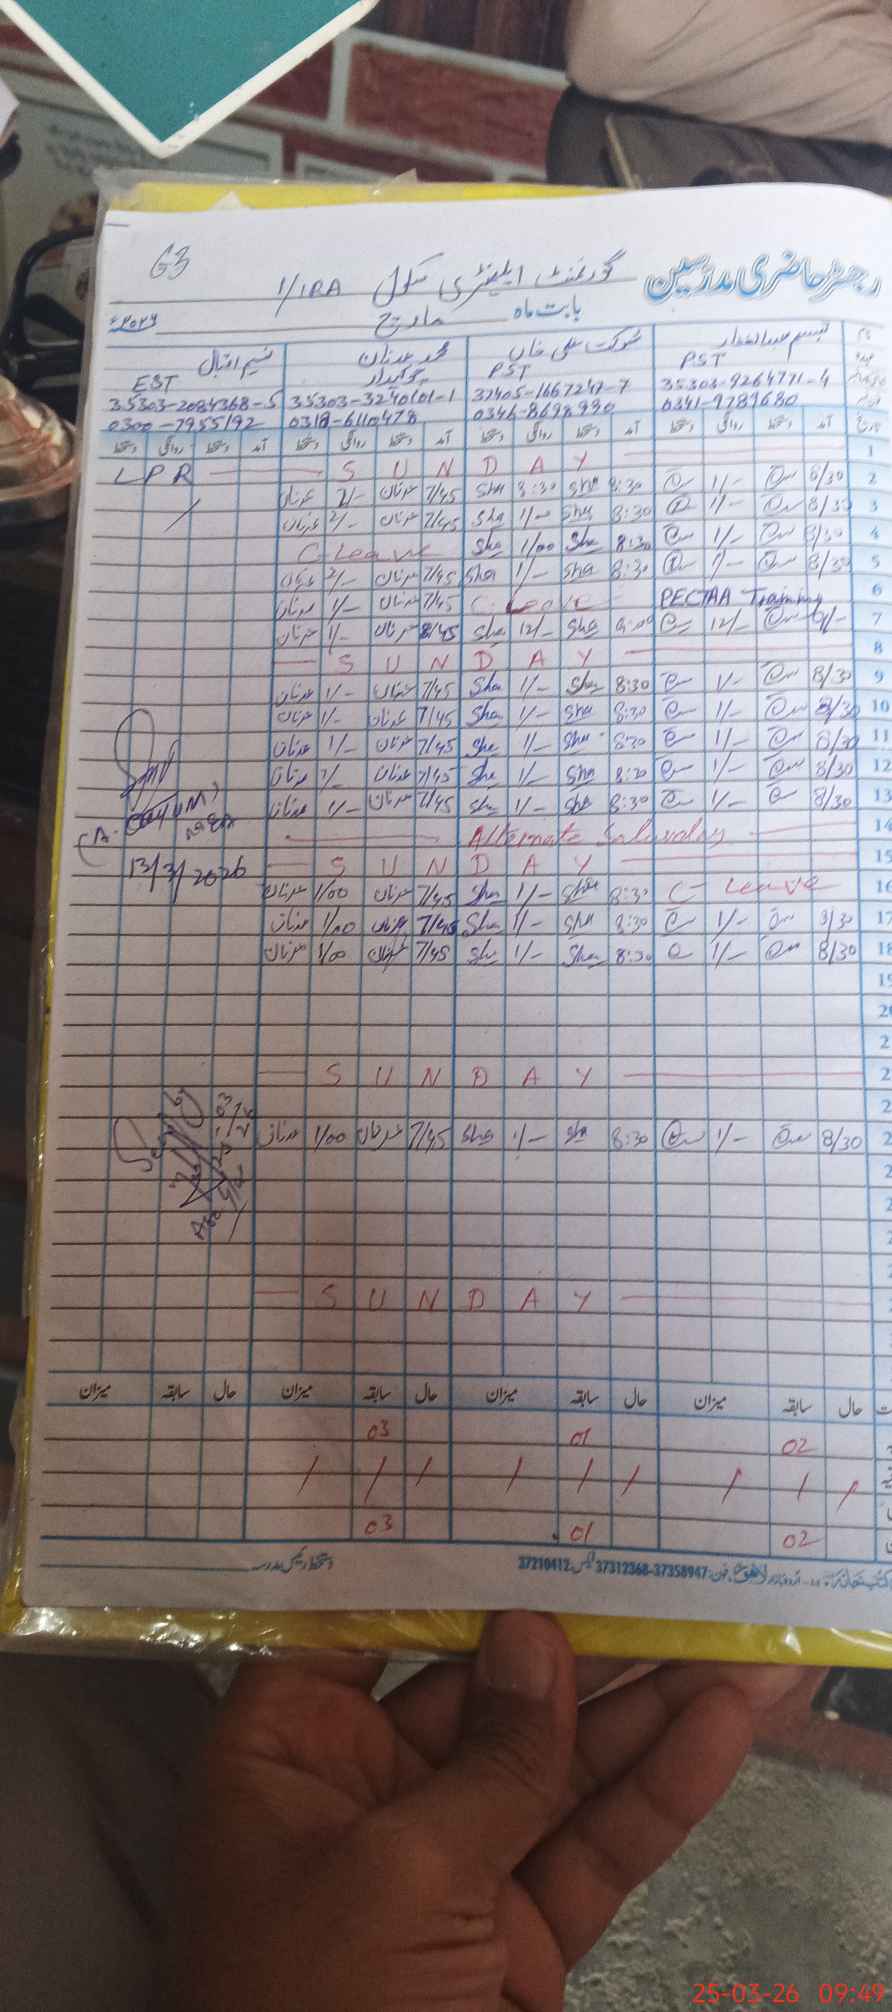 63
رجسٹر حاضری مدرسین
گورنمنٹ ایلیمنٹری سکول 1/1RA
بابت ماہ مارچ ۲۰۲۶ء
نام تبسم عبدالغفار شوکت علی خان محمد عدنان نسیم اقبال
عہدہ PST PST چوکیدار EST
35303-9264771-4 37405-1667247-7 35303-3240101-1 35303-2084368-5
0341-9789680 0346-8698990 0318-6110478 0300-7955192
تاریخ آمد دستخط روانگی دستخط آمد دستخط روانگی دستخط آمد دستخط روانگی دستخط آمد دستخط روانگی دستخط
1 S U N D A Y LPR
2 8/30 1/- 8:30 Sha 8:30 Sha 7/45 عدنان 2/- عدنان
3 8/30 1/- 8:30 Sha 1/00 Sha 7/45 عدنان 2/- عدنان
4 8/30 1/- 8:30 Sha 1/00 Sha C-Leave
5 8/30 1/- 8:30 Sha 1/- Sha 7/45 عدنان 2/- عدنان
6 PECTAA Training C-Leave 7/45 عدنان 1/- عدنان
7 12/- Sha 12/- Sha 8/45 عدنان 1/- عدنان
8 S U N D A Y
9 8/30 1/- 8:30 Sha 1/- Sha 7/45 عدنان 1/- عدنان
10 8/30 1/- 8:30 Sha 1/- Sha 7/45 عدنان 1/- عدنان
11 8/30 1/- 8:30 Sha 1/- Sha 7/45 عدنان 1/- عدنان
12 8/30 1/- 8:30 Sha 1/- Sha 7/45 عدنان 1/- عدنان
13 8/30 1/- 8:30 Sha 1/- Sha 7/45 عدنان 1/- عدنان
14 Alternate Saturday
15 S U N D A Y
13/3/2026
16 C-Leave 8:30 Sha 1/- Sha 7/45 عدنان 1/00 عدنان
17 8/30 1/- 8:30 Sha 1/- Sha 7/45 عدنان 1/00 عدنان
18 8/30 1/- 8:30 Sha 1/- Sha 7/45 عدنان 1/00 عدنان
S U N D A Y
8/30 1/- 8:30 Sha 1/- Sha 7/45 عدنان 1/00 عدنان
S U N D A Y
حال سابقہ میزان حال سابقہ میزان حال سابقہ میزان حال سابقہ میزان
02 01 03
/ / / / / / / / /
02 01 03
دستخط رئیس مدرسہ
فون: 37312368-37358947 فیکس: 37210412
25-03-26 09:49